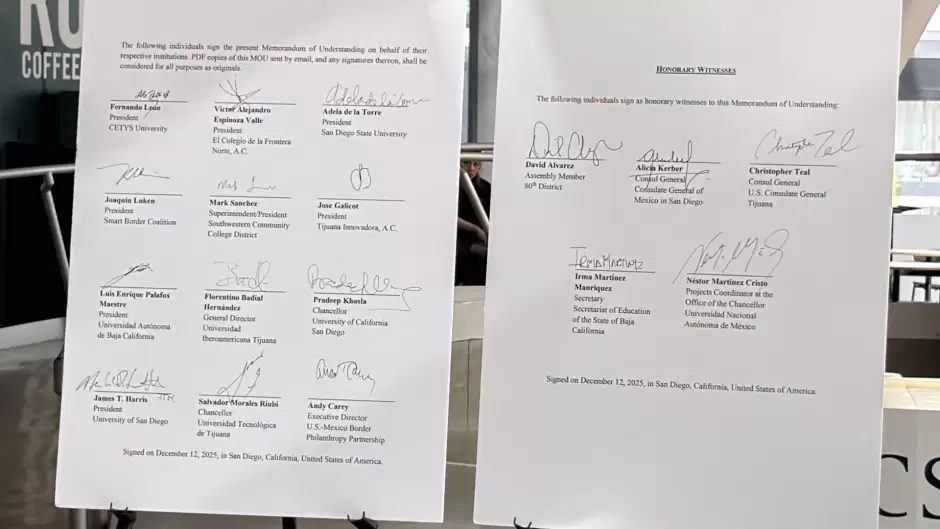 RO
COFFEE
The following individuals sign the present Memorandum of Understanding on behalf of their
respective institutions. PDF copies of this MOU sent by email, and any signatures thereon, shall be
considered for all purposes as originals.
Fernando León
President
CETYS University
Víctor Alejandro
Espinoza Valle
President
El Colegio de la Frontera
Norte, A.C.
Adela de la Torre
Adela de la Torre
President
San Diego State University
Joaquin Luken
President
Smart Border Coalition
Mark Sanchez
Superintendent/President
Southwestern Community
College District
Jose Galicot
President
Tijuana Innovadora, A.C.
Luis Enrique Palafox
Maestre
President
Universidad Autónoma
de Baja California
Florentino Badial
Hernández
General Director
Universidad
Iberoamericana Tijuana
Pradeep Khosla
Chancellor
University of California
San Diego
James T. Harris
President
University of San Diego
Salvador Morales Riubi
Chancellor
Universidad Tecnológica
de Tijuana
Andy Carey
Executive Director
U.S.-Mexico Border
Philanthropy Partnership
Signed on December 12, 2025, in San Diego, California, United States of America.
HONORARY WITNESSES
The following individuals sign as honorary witnesses to this Memorandum of Understanding:
David Alvarez
Assembly Member
80th District
Alicia Kerber
Consul General
Consulate General of
Mexico in San Diego
Christopher Teal
Christopher Teal
Consul General
U.S. Consulate General
Tijuana
IRMA MARTINEZ
Irma Martínez
Manriquez
Secretary
Secretariat of Education
of the State of Baja
California
Néstor Martínez Cristo
Projects Coordinator at the
Office of the Chancellor
Universidad Nacional
Autónoma de México
Signed on December 12, 2025, in San Diego, California, United States of America.
CS